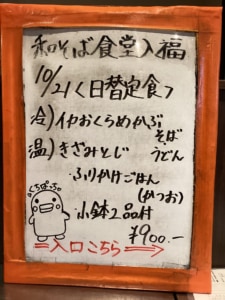 和そば食堂入福
10/21く日替定食>
冷)イカおくらめかぶ
そば
温)きざみとじ うどん
・ふりかけごはん
(かつお)
・小鉢2品付
¥900.-
くちぱっち
⇒入口こちら→